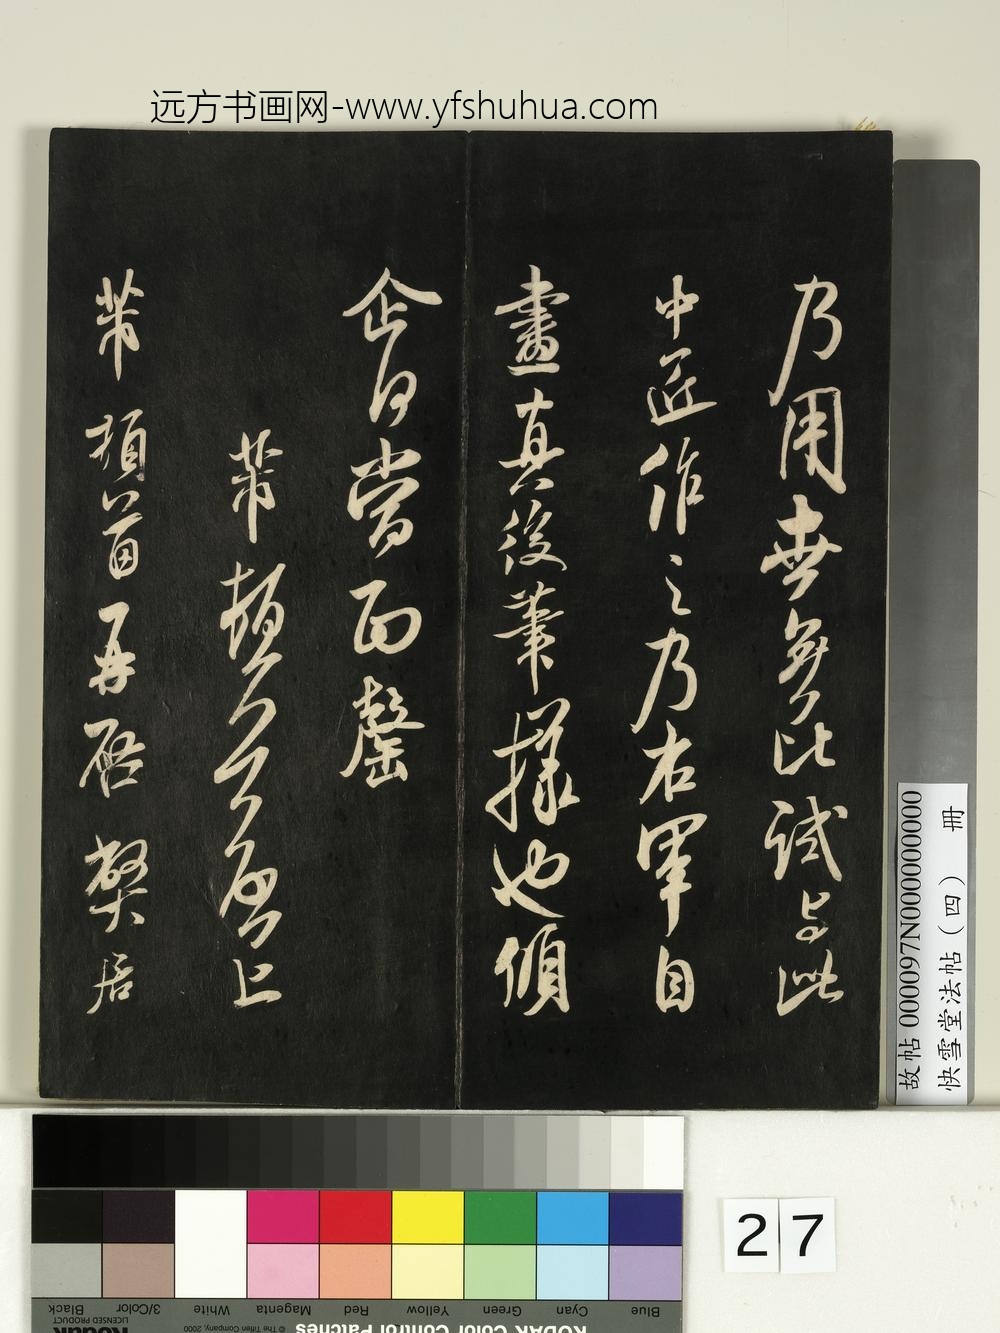 远方书画网-www.yfshuhua.com
乃用世無比試与此
中匠作之乃右軍自
畫真後筆様也傾
企自當面罄
芾頓首
上
芾頓首再啓
居
故帖 000097N000000000
快雪堂法帖（四） 冊
27
Blue Cyan Green Yellow Red Magenta White 3/Color Black
KODAK Color Control Patches
© The Tiffen Company, 2000
Kodak
LICENSED PRODUCT